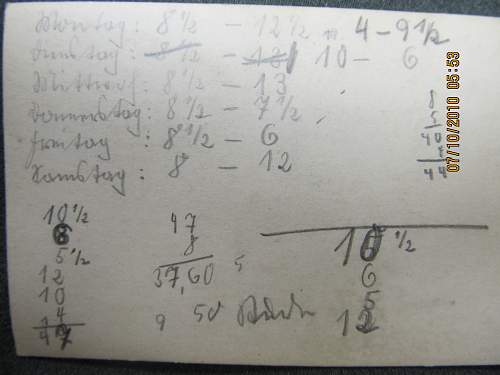 Montag: 8 1/2 – 12 1/2 u. 4 – 9 1/2
Dienstag: 8 1/2 – 18 10 – 6
Mittwoch: 8 1/2 – 13
Donnerstag: 8 1/2 – 7 1/2
Freitag: 8 1/2 – 6
Samstag: 8 – 12
8
5
40
4
44
10 1/2
6
5 1/2
12
10
4
47
47
8
37,60
50
10 1/2
6
5
12
07/10/2010 05:53